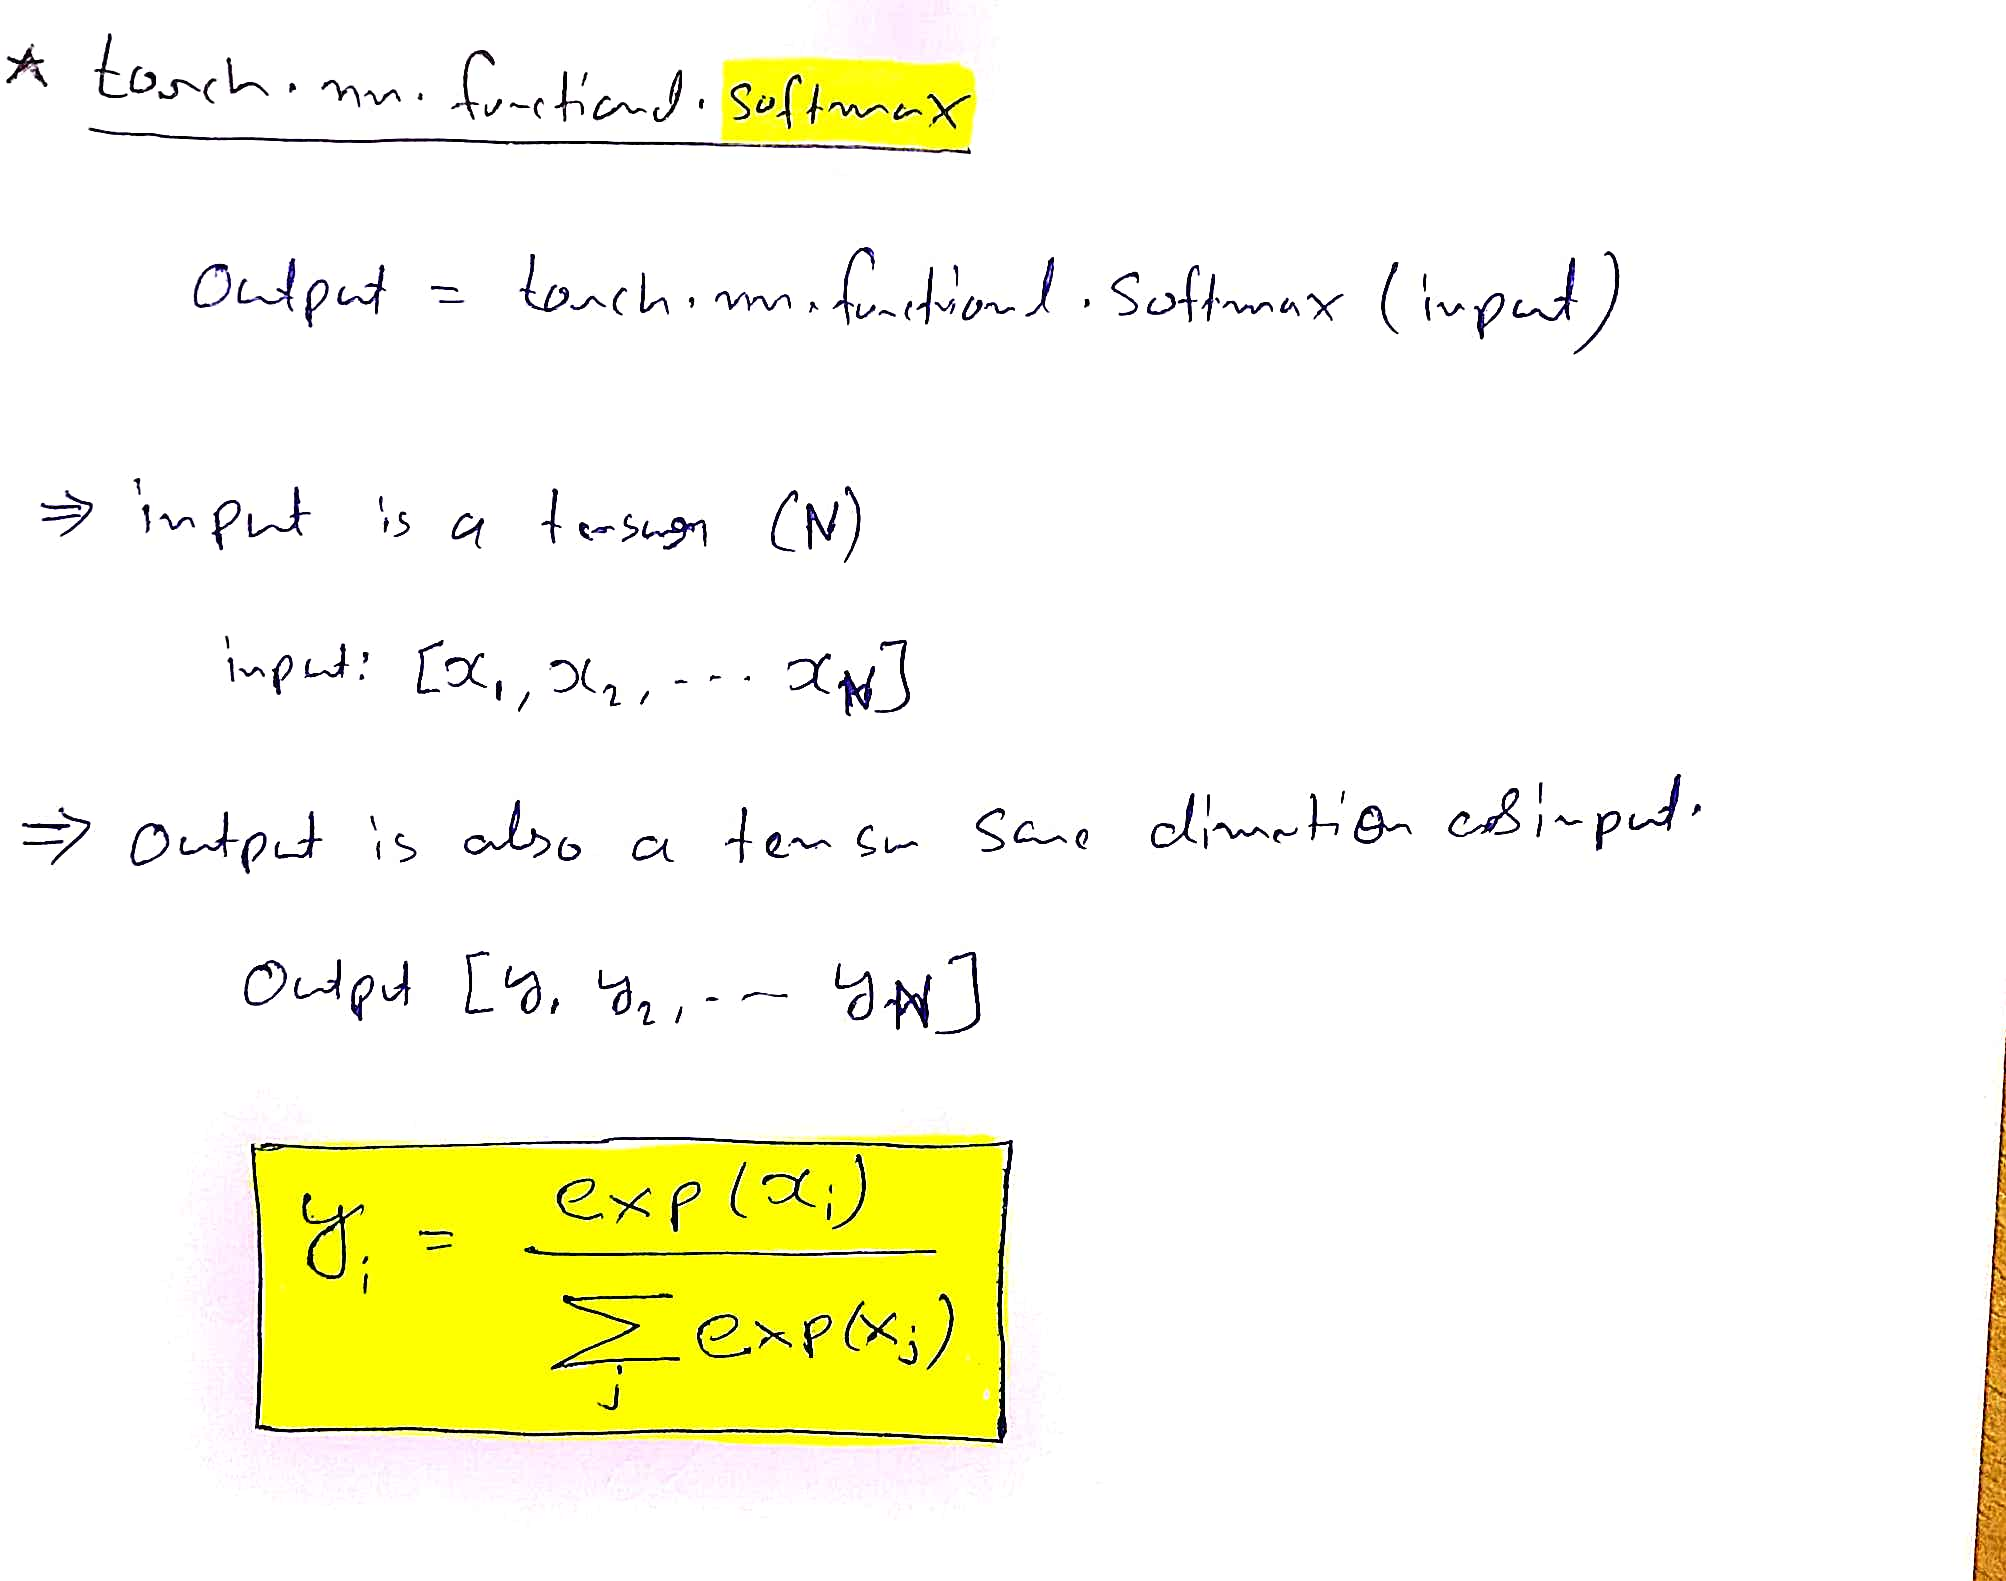 * torch.nn.functional.softmax
Output = torch.nn.functional.softmax (input)
⇒ input is a tensor (N)
input: [x₁, x₂, --- x_N]
⇒ Output is also a tensor same dimention as input.
Output [y₁ y₂, -- y_N]
y_i = exp(x_i) / Σ_j exp(x_j)